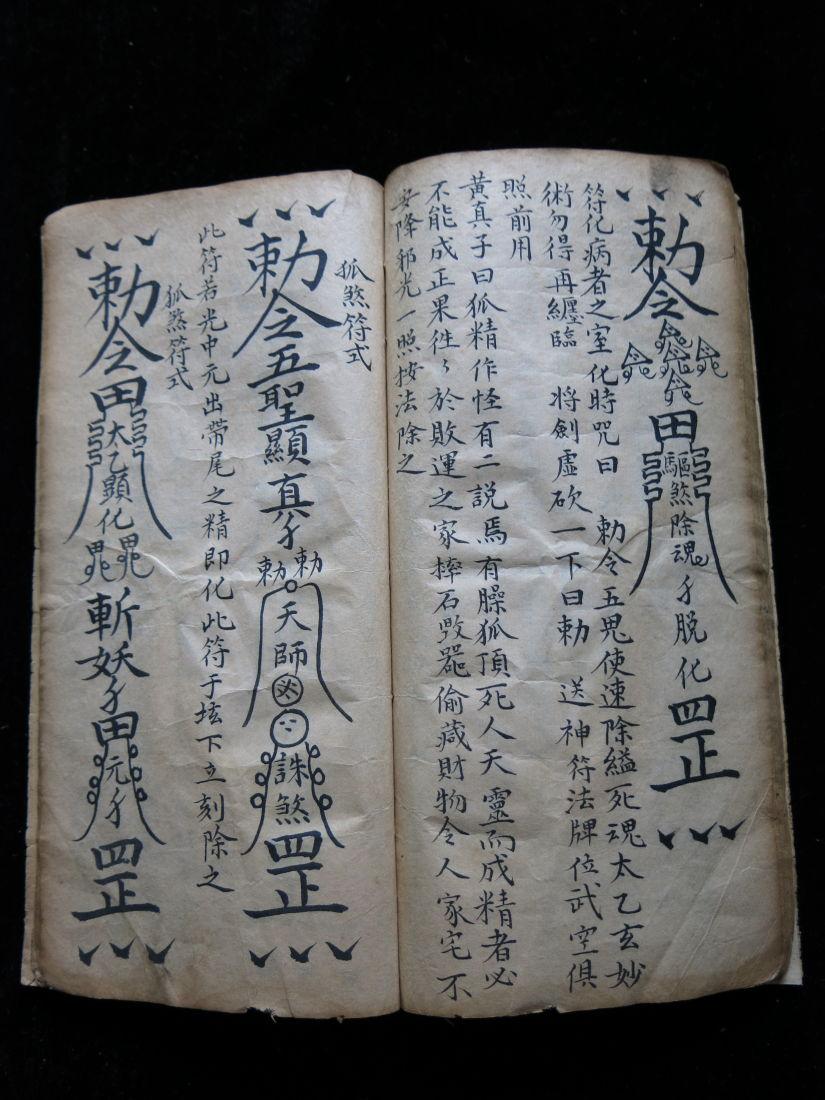 勅令田驅煞除魂脱化罡
符化病者之室化時咒曰　勅令五鬼使速除縊死魂太乙玄妙
術勿得再纏臨　將劍虛砍一下曰勅　送神符法牌位武空俱
照前用
黃真子曰狐精作怪有二説焉有臊狐頂死人天靈而成精者必
不能成正果徃々於敗運之家摔石毁器偷藏財物令人家宅不
安降邪光一照按法除之
狐煞符式
勅令五聖顯真
勅勅
天師
誅煞罡
此符若光中元出帶尾之精即化此符于垓下立刻除之
狐煞符式
勅令田太乙顕化
斬妖田元罡